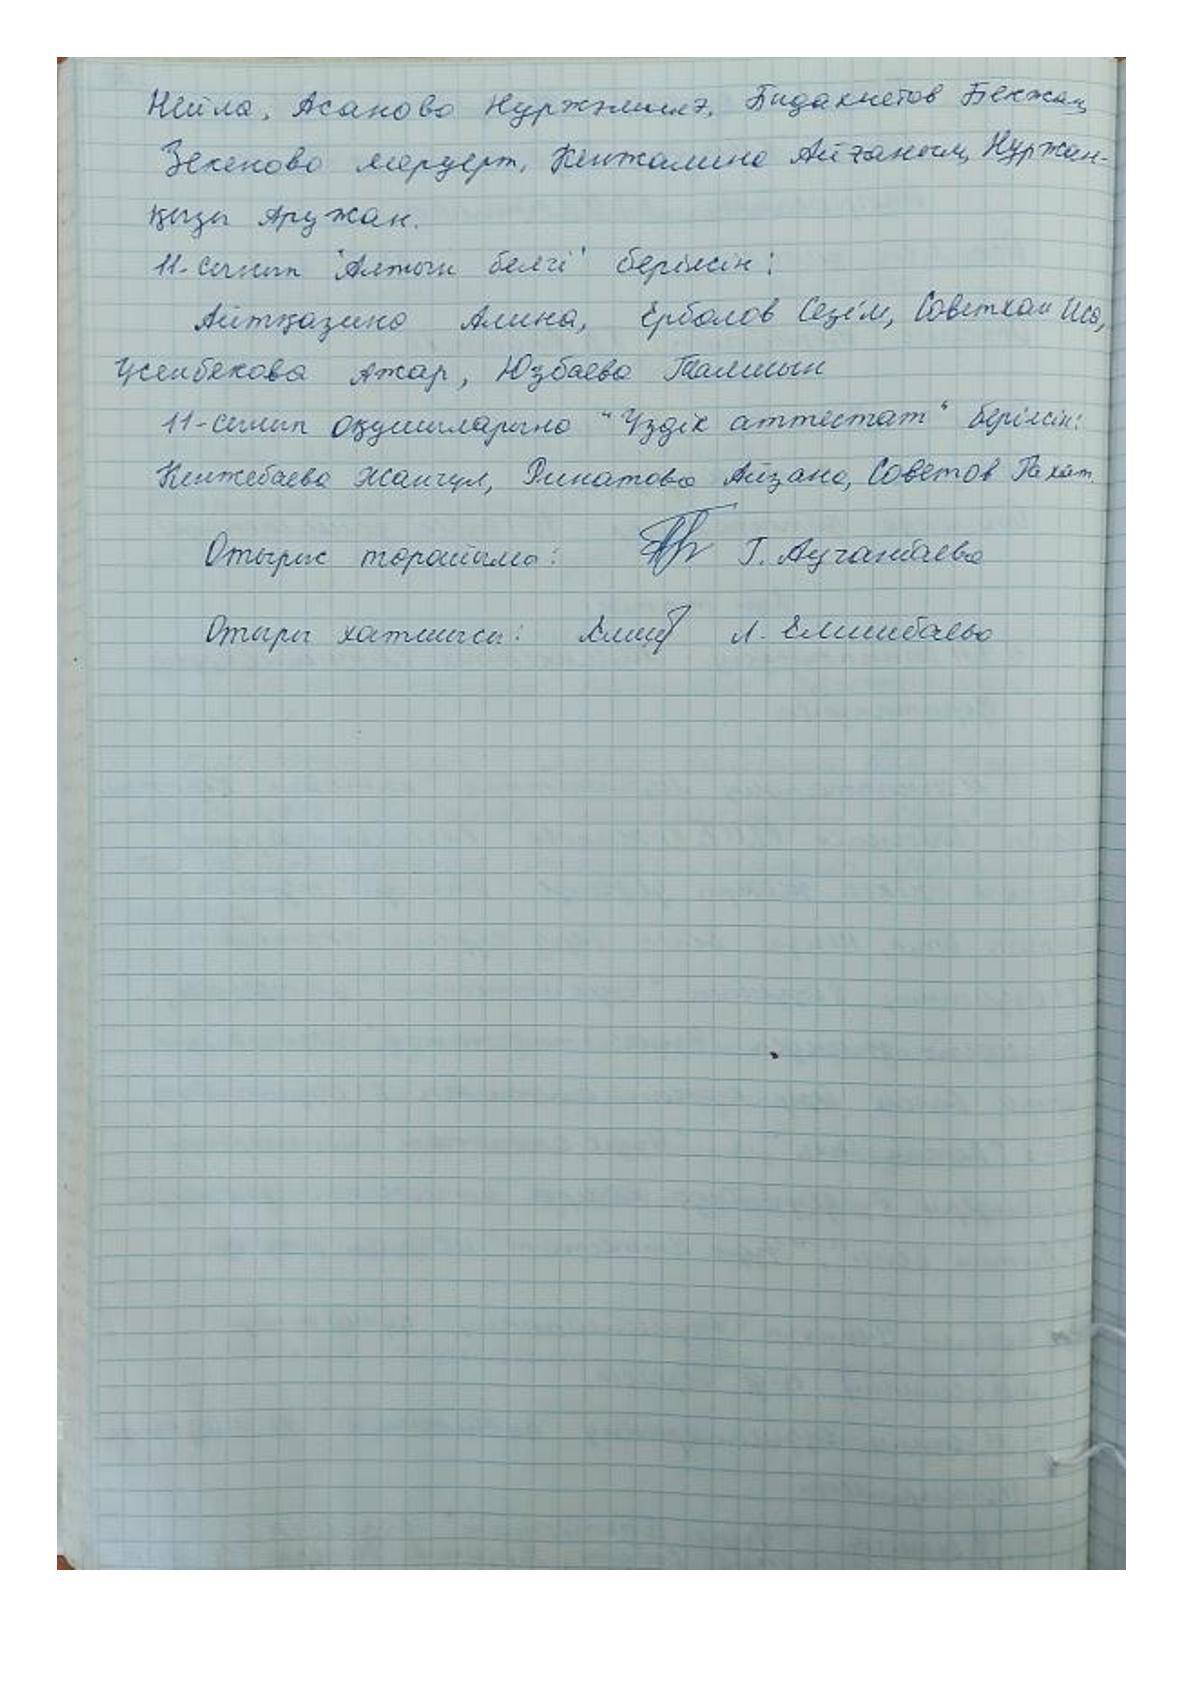 Нейла, Асанова Нуржәмилә, Бидахметов Бекжан,
Зекенова Меруерт, Кенжалина Айғаным, Нұржан-
қызы Аружан.
11-сынып "Алтын белгі" берілсін:
Айтқазина Алина, Ерболов Сезім, Советхан Иса,
Усенбекова Ажар, Юзбаева Талшын
11-сынып оқушыларына "Үздік аттестат" берілсін:
Кенжебаева Жангүл, Ринатова Айзана, Советов Рахат.
Отырыс төрайымы: Г. Ауганбаева
Отыры хатшысы: Л. Елшибаева